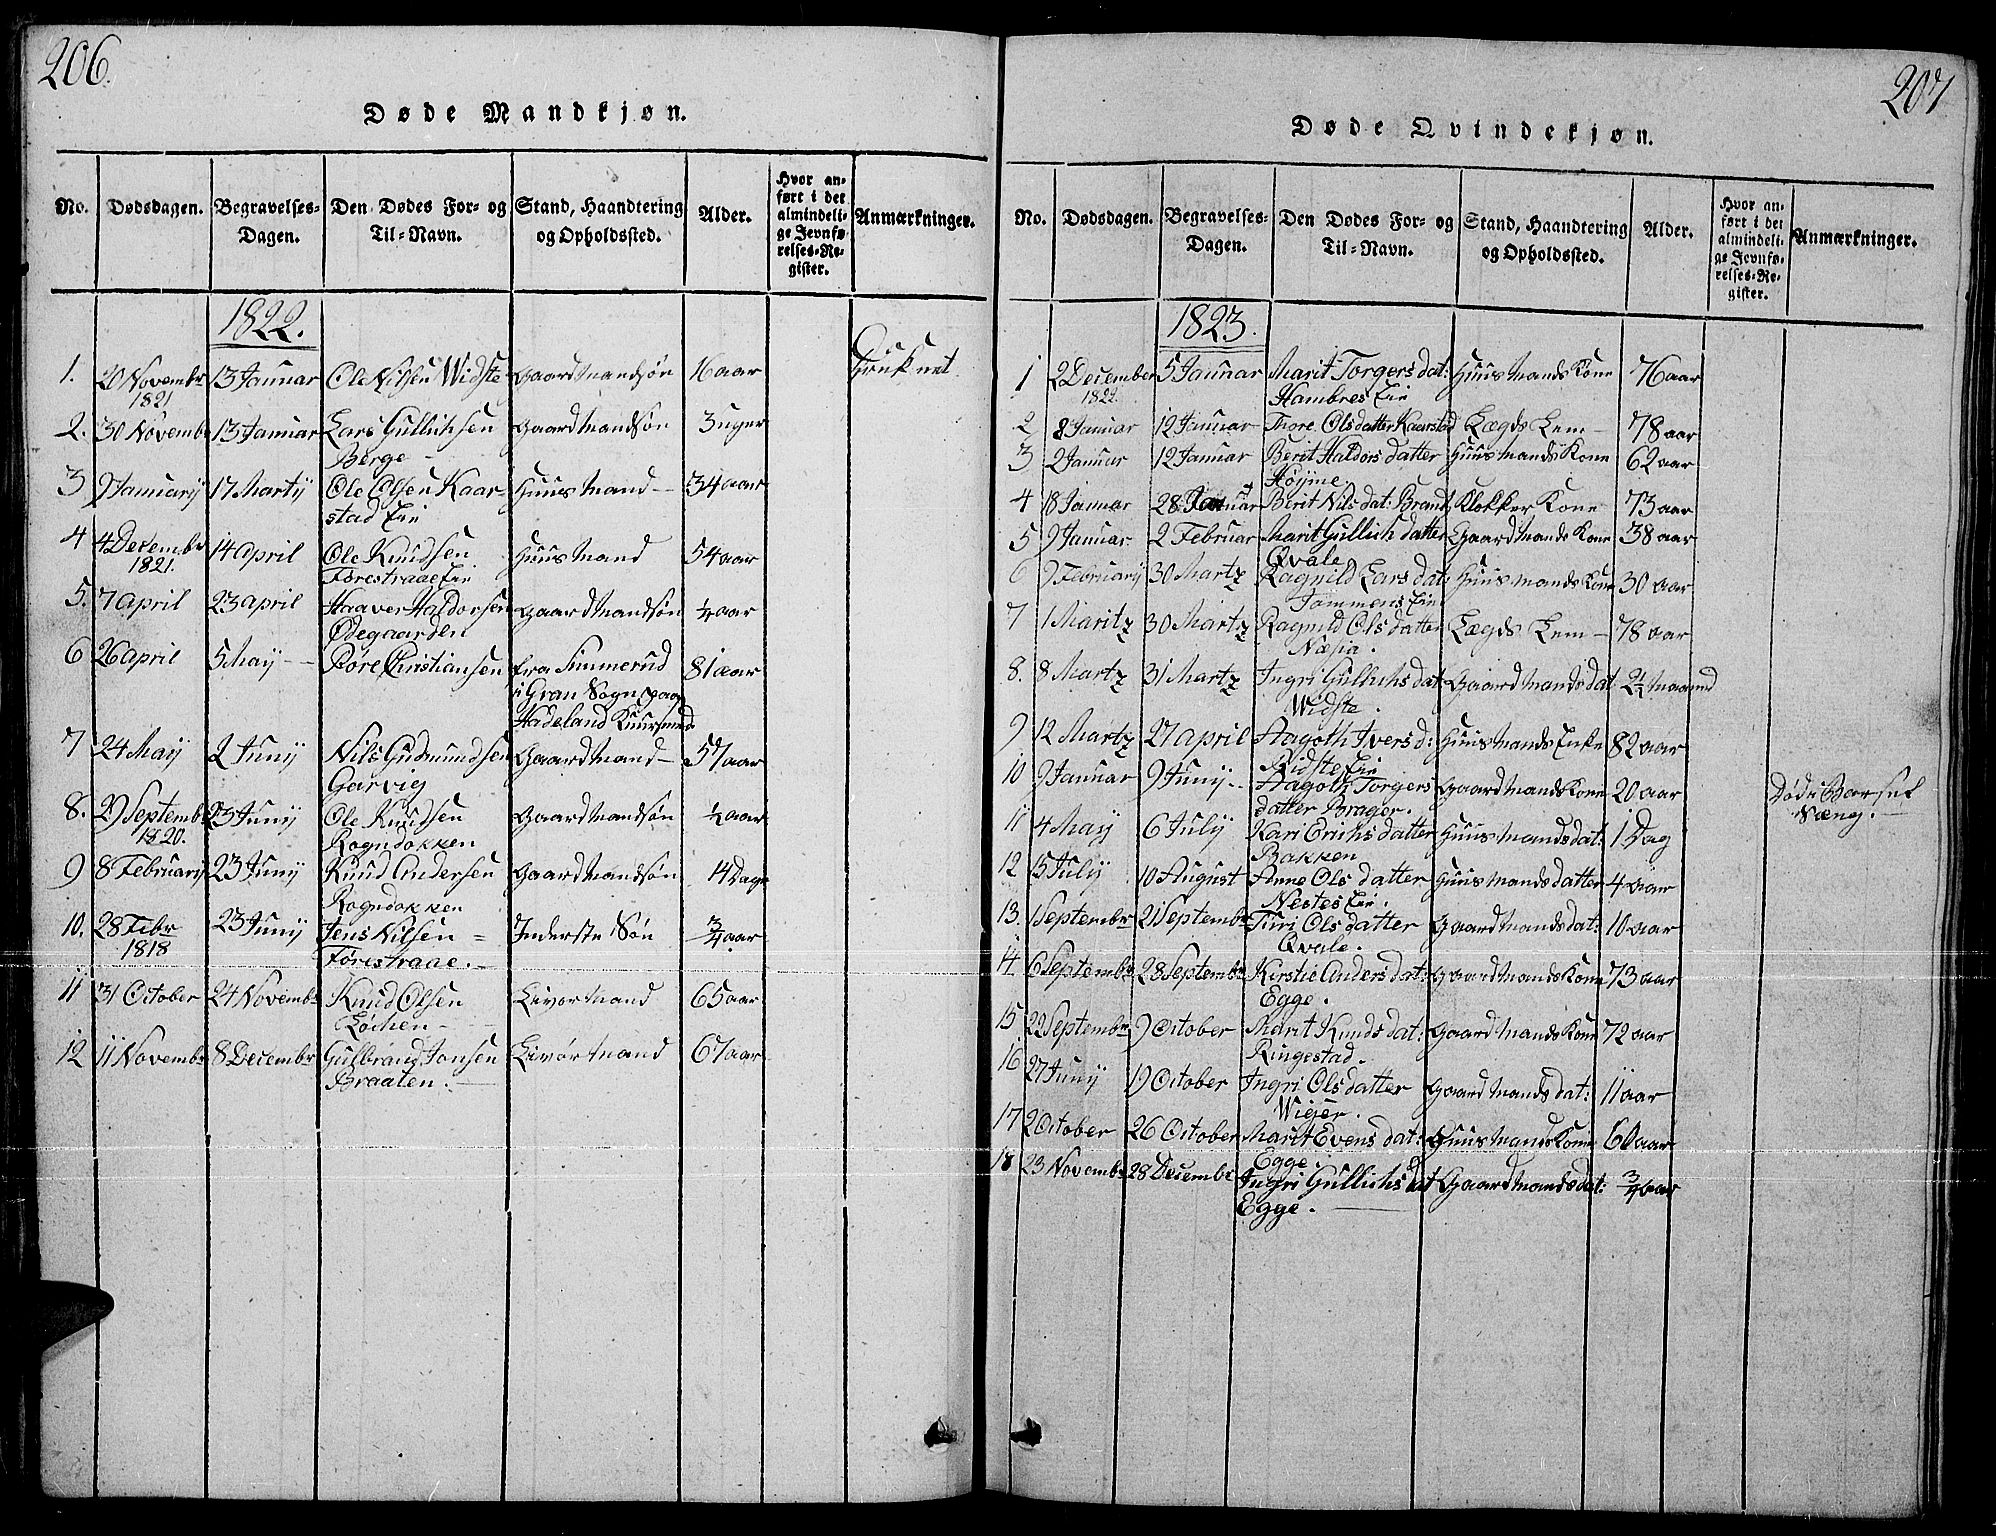 206.
Døde Mandkjøn.
No. Dødsdagen. Begravelses-Dagen. Den Dødes For- og Til-Navn. Stand, Haandtering og Opholdssted. Alder. Hvor anført i det almindelige Jevnførelses-Register. Anmærkninger.
1822.
1. 20 Novembr 13 Januar Ole Nilsen Widste Gaardmandsøn 16 aar Druknet
1821
2. 30 Novembr 13 Januar Lars Gullichsen Gaardmandsøn 3 uger
Berge
3 9 Januarij 17 Martij Ole Olsen Kaar- Huusmand 34 aar
stad Eie
4 4 Decembr 14 April Ole Knudsen Huusmand 54 aar
1821. Forestraae Eie
5. 7 April 23 April Haaver Haldorsen Gaardmandsøn ¼ aar
Ødegaarden
6 26 April 5 Maij Pore Christiansen fra Simmerud 81 aar
i Gran Sogn paa
Hadeland
7 24 Maij 2 Junij Nils Gudmundsen Gaardmand 57 aar
Garvig
8. 29 Septembr 23 Junij Ole Knudsen Gaardmandsøn ¼ aar
1820. Rogndokken
9 8 Februarij 23 Junij Knud Andersen Gaardmandsøn 14 Dage
Rogndokken
10. 28 Febr 23 Junij Jens Nilsen Inderste Søn ¾ aar
1818 Förestraae.
11 31 October 24 Novembr Knud Olsen Livørmand 65 aar
Løchen
12 11 Novembr 8 Decembr Gulbrand Jonsen Livørmand 67 aar
Braaten.
207
Døde Qvindekjøn.
No. Dødsdagen. Begravelses-Dagen. Den Dødes For- og Til-Navn. Stand, Haandtering og Opholdssted. Alder. Hvor anført i det almindelige Jevnførelses-Register. Anmærkninger.
1823.
1 2 December 5 Januar Marit Torgersdat: Huusmands Kone 76 aar
1822. Hambres Eie
2 8 Januar 12 Januar Thore Olsdatter Kaarstad Lægds Lem 78 aar
3 2 Januar 12 Januar Berit Haldorsdatter Huusmands Kone 62 aar
Høyme
4 8 Januar 28 Januar Berit Nilsdat: Brandt Klokker Kone 73 aar
5 9 Januar 2 Februar Marit Gullichdatter Gaardmands Kone 38 aar
Qvale
6 9 Februarij 30 Martz Ragnild Larsdat: Huusmands Kone 30 aar
Tommens Eie
7 1 Maritz 30 Martz Ragnild Olsdatter Lægds Lem 78 aar
Næsia.
8. 8 Martz 31 Martz Ingri Gullichsdat Gaardmandsdat 2½ Maaned
Widste.
9 12 Martz 27 April Aagoth Iversd: Huusmands Enke 82 aar
Widste Eie
10 9 Januar 9 Junij Aagoth Torgers Gaardmands Kone 20 aar Død i Barsel
datter Brager. Sæng.
11 4 Maij 6 Julij Kari Erichsdatter Huusmandsdat: 1 Dag
Bakken
12 15 Julij 10 August Anne Olsdatter Huusmandsdatter 4 aar
Nestes Eie.
13. 1 Septembr 21 Septembr Turi Olsdatter Gaardmandsdat: 10 aar
Qvale.
14. 6 Septembr 28 Septembr Kirstie Andersdat: Gaardmands Kone 73 aar
Egge.
15 22 Septembr 9 October Marit Knudsdat: Gaardmands Kone 72 aar
Ringestad.
16 27 Junij 19 October Ingri Olsdatter Gaardmandsdat: 11 aar
Wiger.
17 2 October 26 October Marit Evensdat: Huusmands Kone 60 aar
Egge.
18 23 Novembr 28 Decembr Ingri Gullichsdat Gaardmandsdat: ¾ aar
Egge.